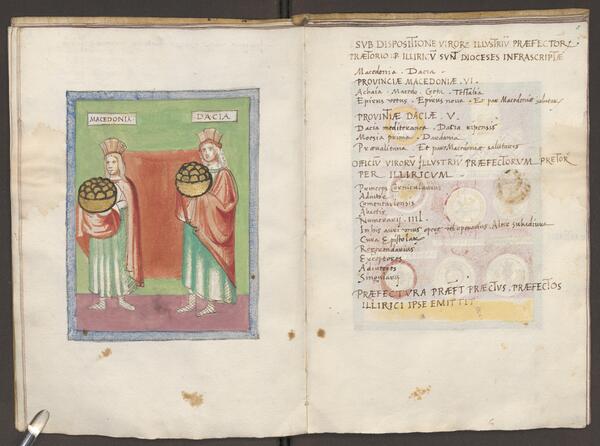 MACEDONIA
DACIA
SVB DISPOSITIONE VIROR ILLVSTRIV PRÆFECTOR
PRÆTORIO P ILLIRICV SVNT DIOCESES INFRASCRIPTÆ
Macedonia . Dacia .
PROVINCIÆ MACEDONIÆ . VI .
Achaia . Macedo . Creta . Thessalia
Epirus vetus . Epirus nova . Et pars Macedoniæ salutaris
PROVINTIÆ DACIÆ . V .
Dacia mediterranea . Dacia ripensis
Moesia prima . Dardania
Prævalitana . Et pars Macedoniæ salutaris
OFFICIV VIRORV ILLVSTRIV PRÆFECTORVM PRETOR
PER ILLIRICVM .
Princeps Corniculavius
Adiutor
Comentariensis
Numerarii . IIII .
In his auri unus operum Alter subsidiorum
Cura Epistolar
Regendarius
Exceptores
Adiutores
Singularii
PRÆFECTVRA PRÆFT PRÆCTVS . PRÆFECTOS
ILLIRICI IPSE EMITTIT